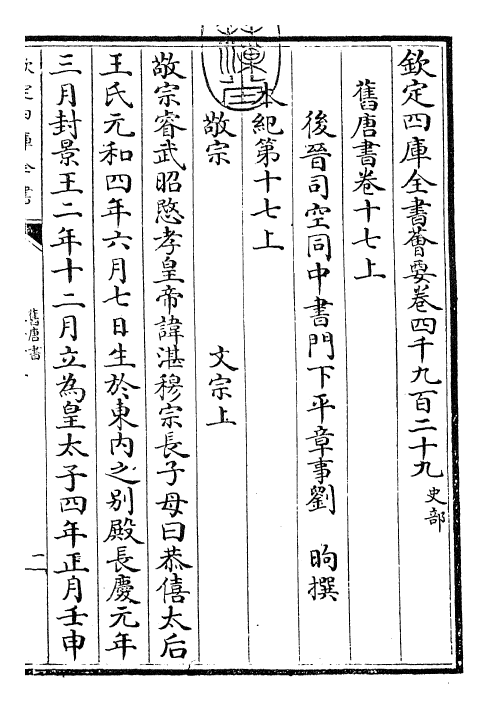 欽定四庫全書薈要卷四千九百二十九 史部
舊唐書卷十七上
後晉司空同中書門下平章事劉 昫撰
本紀第十七上
敬宗 文宗上
敬宗睿武昭愍孝皇帝諱湛穆宗長子母曰恭僖太后
王氏元和四年六月七日生於東内之别殿長慶元年
三月封景王二年十二月立為皇太子四年正月壬申
欽定四庫全書
舊唐書
二